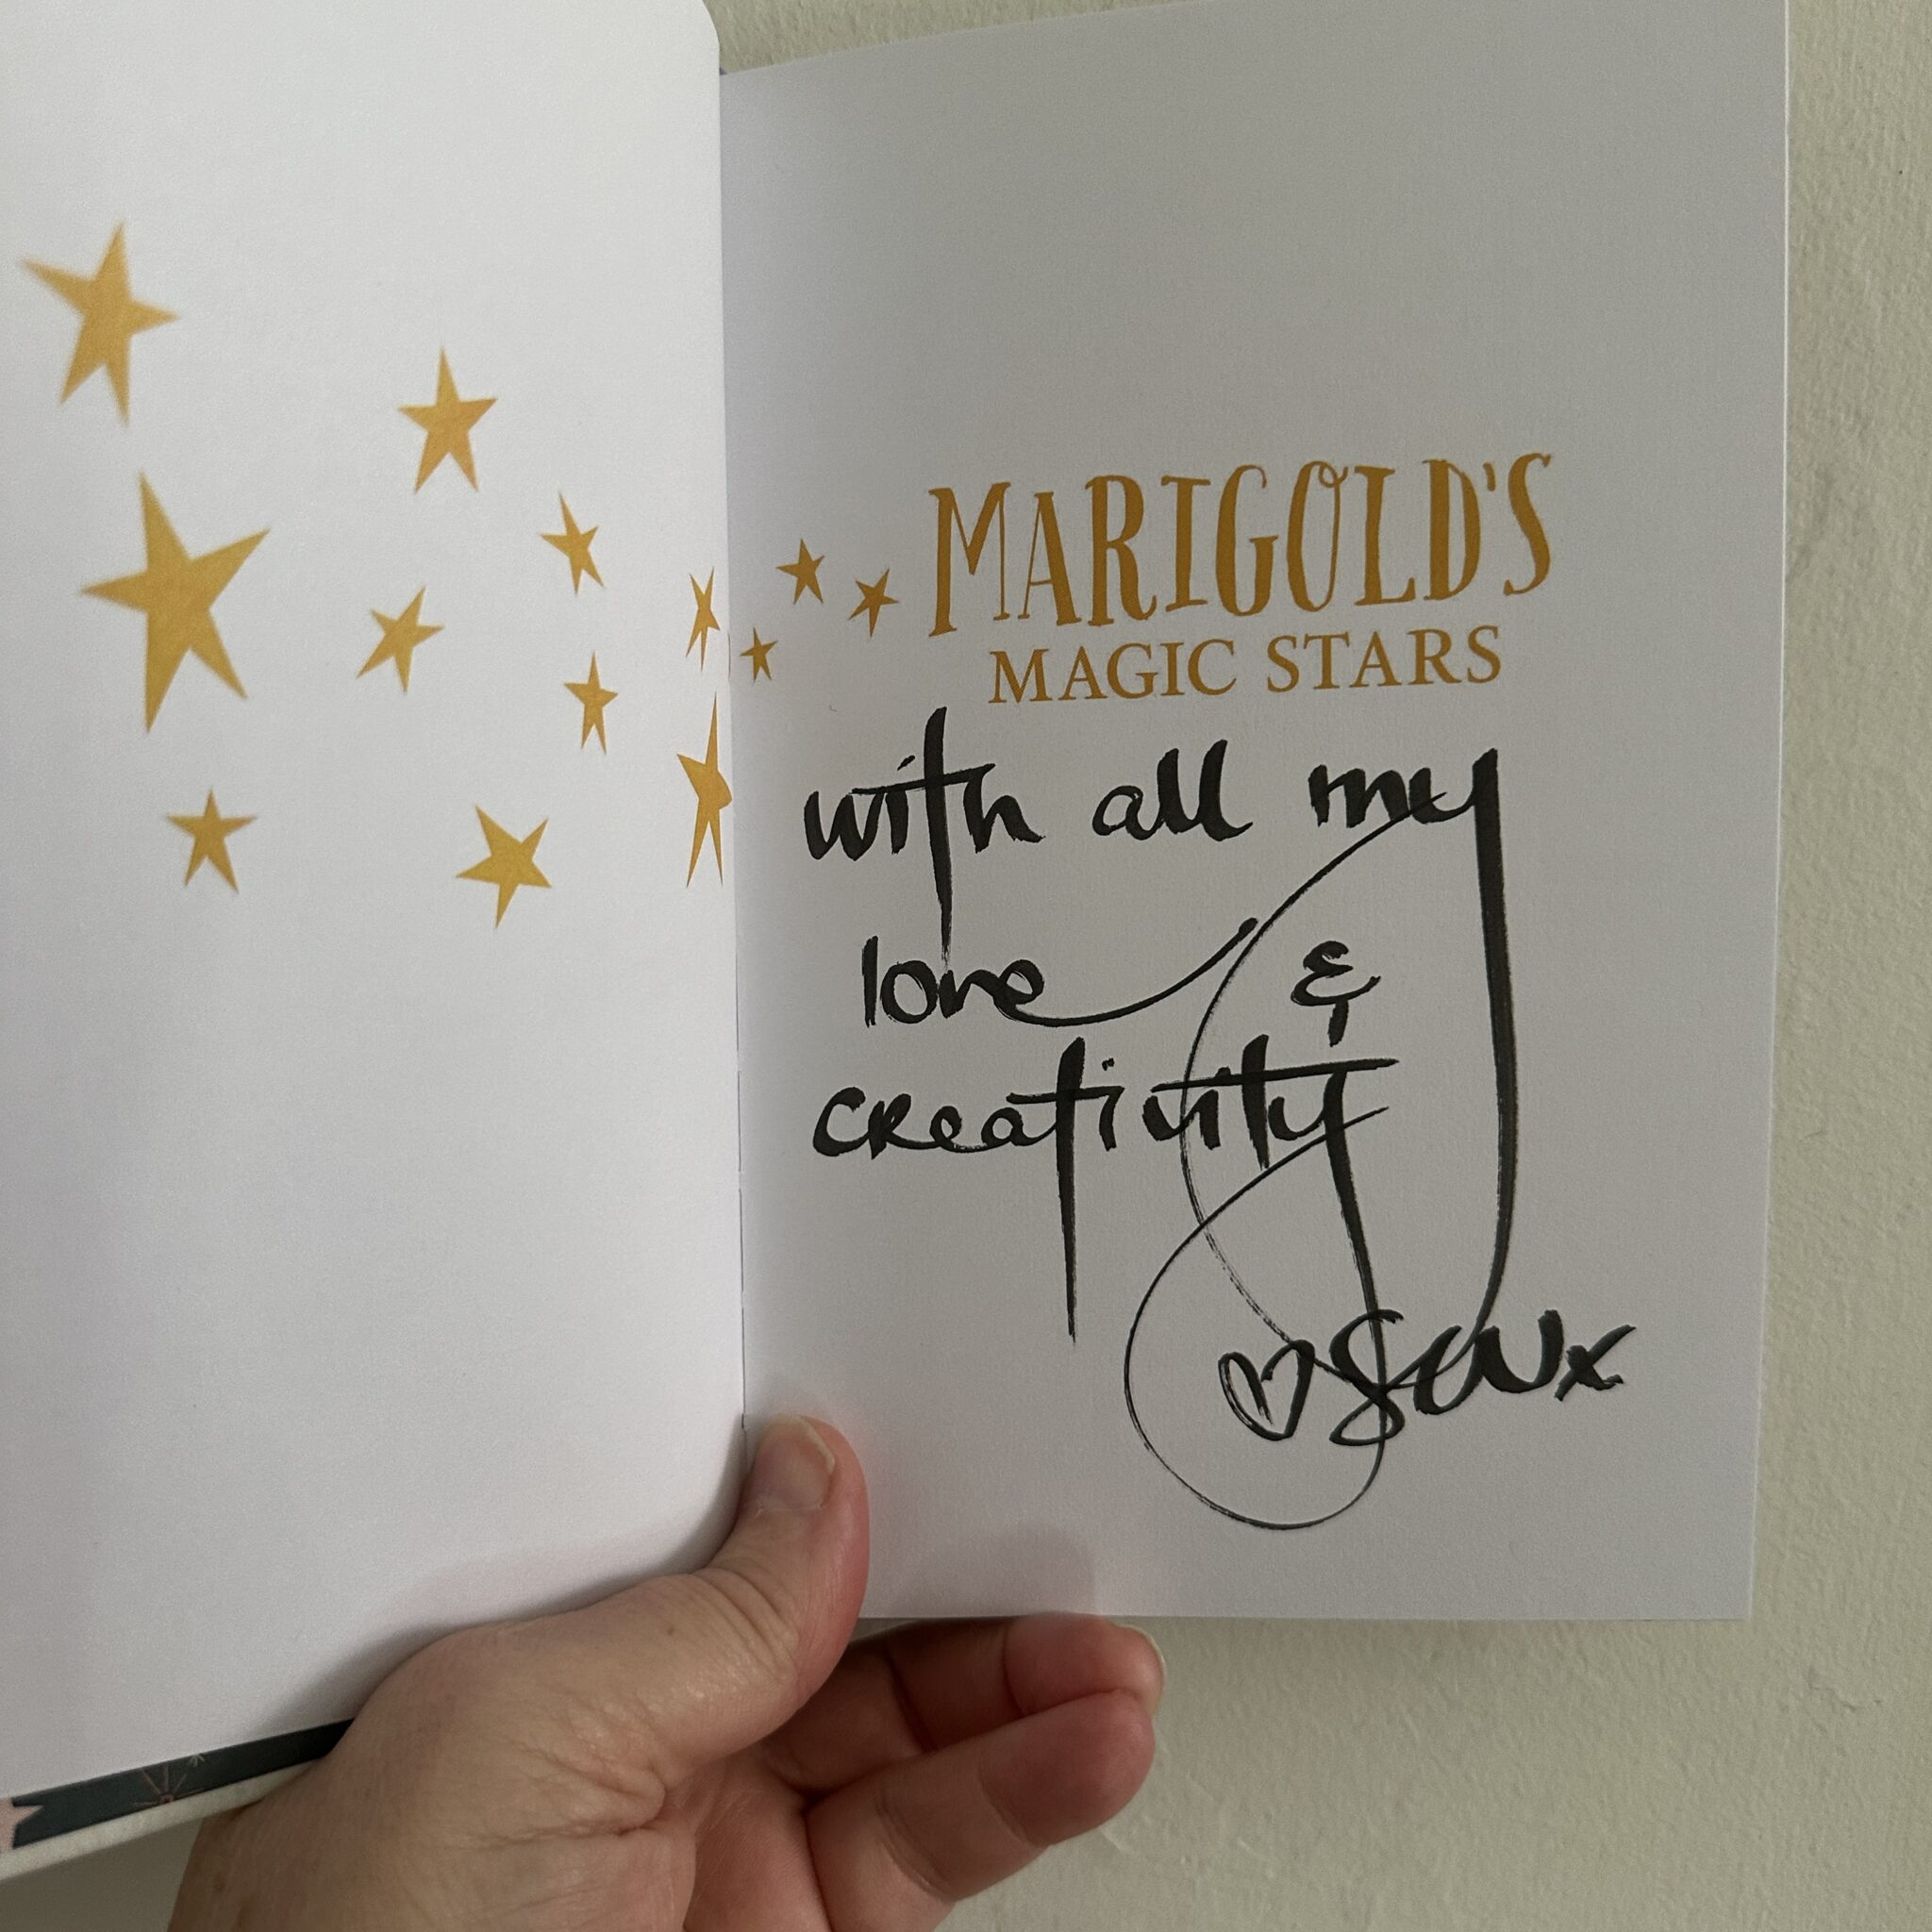 MARIGOLD'S
MAGIC STARS
with all my
love &
creativity